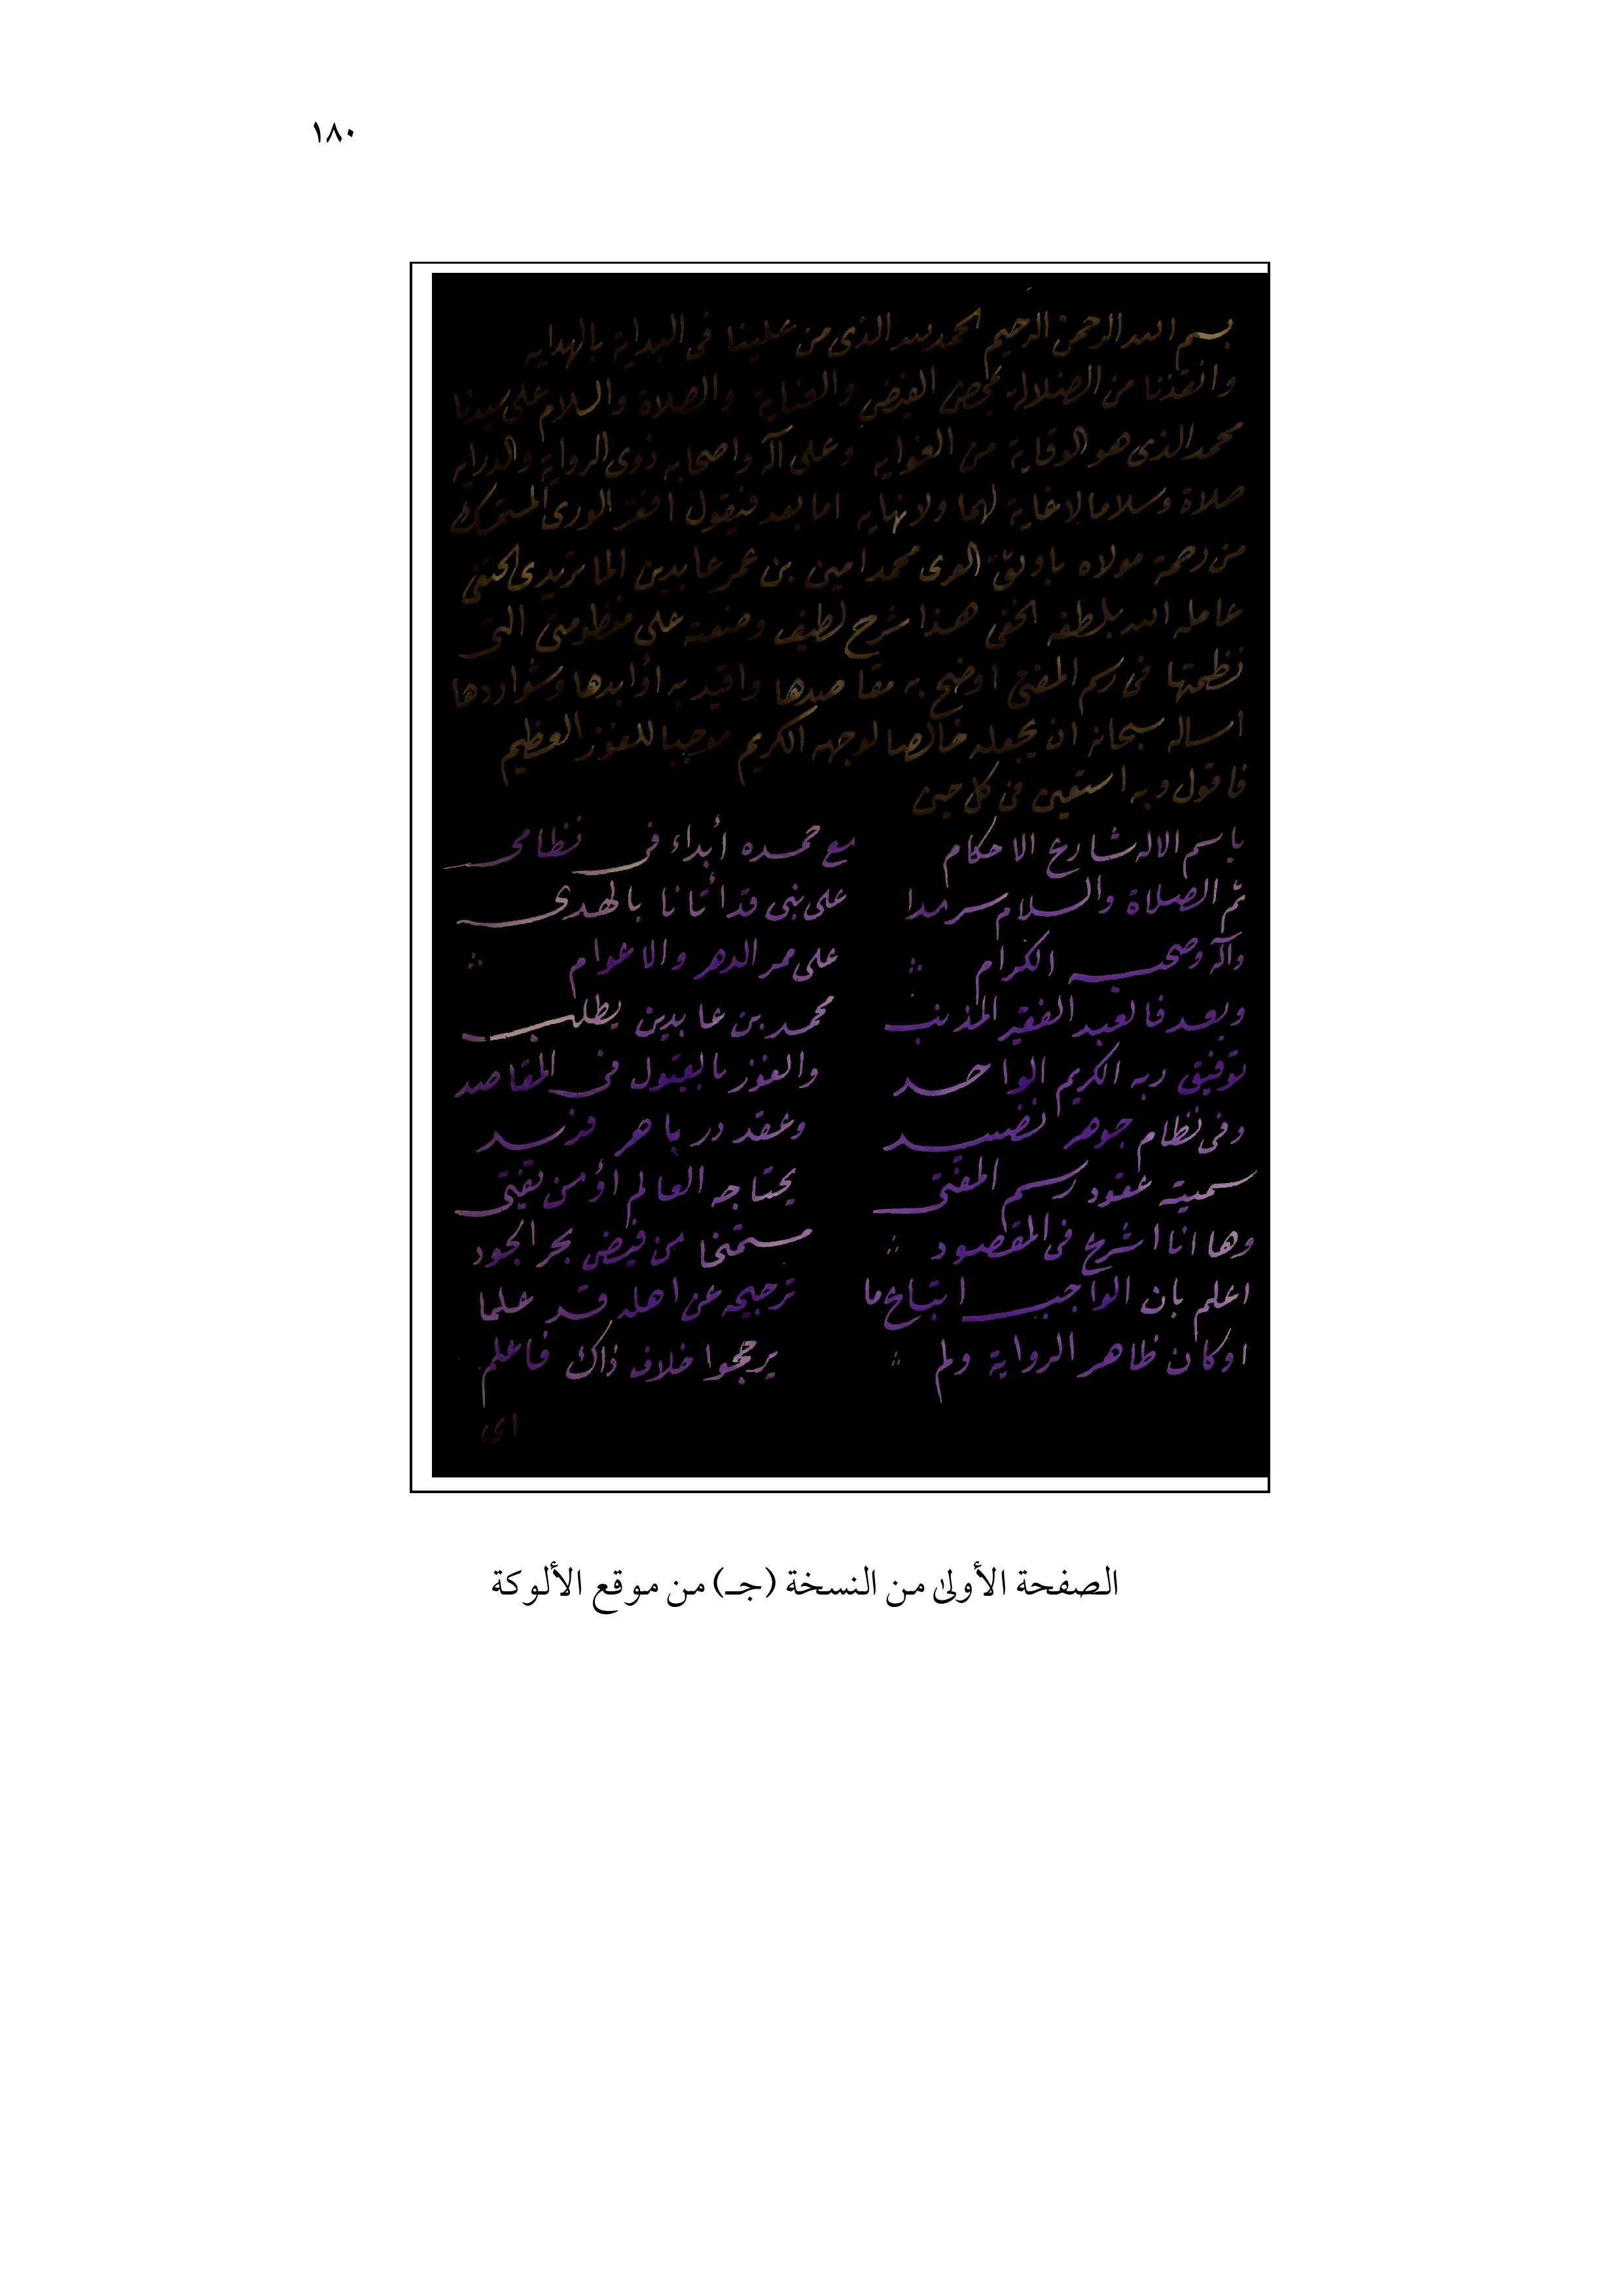 ١٨٠
بسم الله الرحمن الرحيم الحمد لله الذى من علينا فى البداية بالهدايه
وانقذنا من الضلالة بمحض الفيض والعناية والصلاة والسلام على سيدنا
محمد الذى هو الوقاية من الغوايه وعلى آله واصحابه ذوى الرواية والدرايه
صلاة وسلاما لا غاية لهما ولا نهايه اما بعد فيقول افقر الورى المستمسك
من رحمة مولاه باوثق العرى محمد امين بن عمر عابدين الماتريدى الحنفى
عامله الله بلطفه الخفى هذا شرح لطيف وضعته على منظومتى التى
نظمتها فى رسم المفتى اوضح به مقاصدها واقيد به أوابدها وشواردها
اساله سبحانه ان يجعله خالصا لوجهه الكريم موجبا للفوز العظيم
فاقول وبه استعين فى كل حين
باسم الاله شارع الاحكام مع حمده أبداء فى نظامى
ثم الصلاة والسلام سرمدا على نبى قد أتانا بالهدى
وآله وصحبه الكرام على ممر الدهر والاعوام
وبعد فالعبد الفقير المذنب محمد بن عابدين يطلب
توفيق ربه الكريم الواحد والفوز بالقبول فى المقاصد
وفى نظام جوهر نضيد وعقد در باهر فريد
سميته عقود رسم المفتى يحتاجه العالم أو من يفتى
وها انا اشرع فى المقصود مستمنحا من فيض بحر الجود
اعلم بان الواجب اتباع ما ترجيحه عن اهله قد علما
او كان ظاهر الرواية ولم يرجحوا خلاف ذاك فاعلم
اى
الصفحة الأولى من النسخة (جـ) من موقع الألوكة